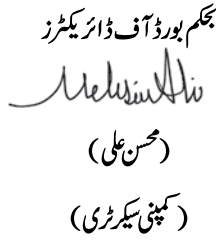 بحکم بورڈ آف ڈائریکٹرز
Mohsin Ali
(محسن علی)
(کمپنی سیکرٹری)